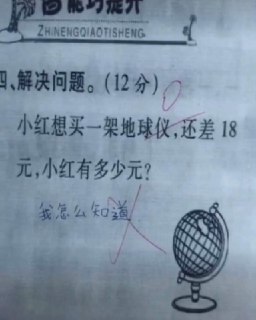 智能巧提升
ZHINENGQIAOTISHENG
四、解决问题。(12分)
0
小红想买一架地球仪,还差18
元,小红有多少元?
我怎么知道